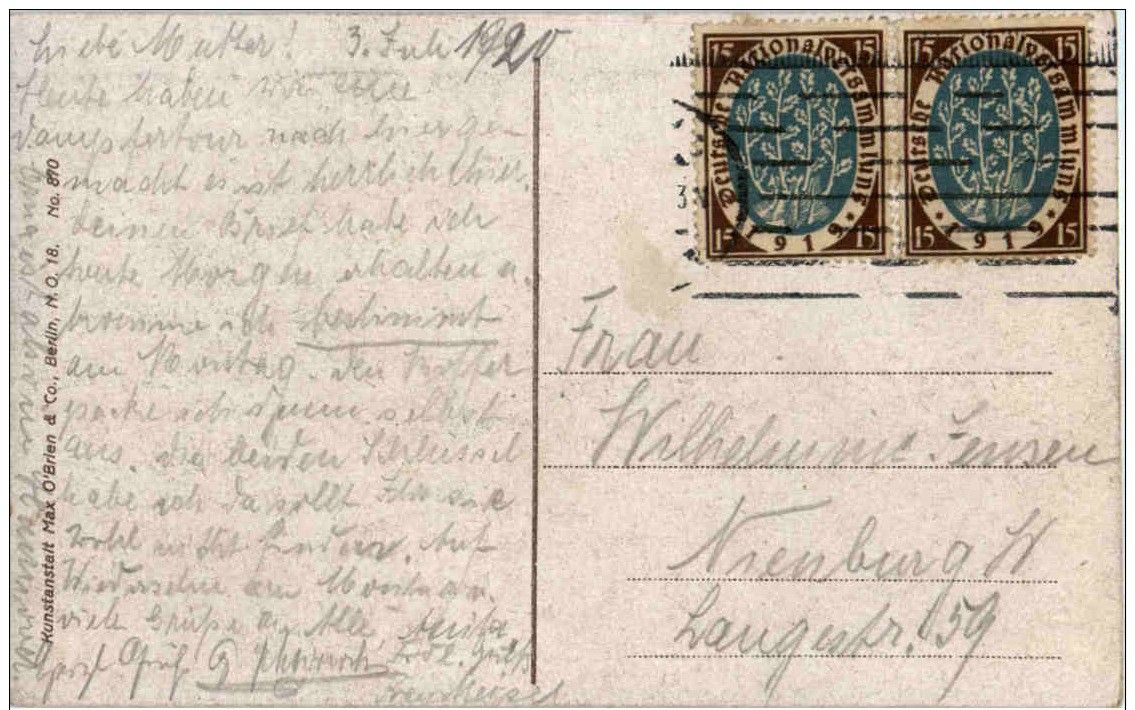 Liebe Mutter! 3. Juli 1920
Heute haben wir eine
Dampfertour nach hier ge-
macht es ist herrlich hier.
Deinen Brief habe ich
heute Morgen erhalten u.
komme ich bestimmt
am Montag. Den Koffer
packe ich selbst
aus. Die beiden Schlüssel
habe ich da sollt Ihr
wohl nicht finden. Auf
Wiedersehn am Montag.
viele Grüße an Alle
Gruß
Kunstanstalt Max O'Brien & Co., Berlin, N. O. 18. No. 870
15 15
Deutsche Nationalversammlung
* 1919 *
15 15
15 15
Deutsche Nationalversammlung
* 1919 *
15 15
Frau
Wilhelmine Jensen
Nienburg W
Langestr. 59